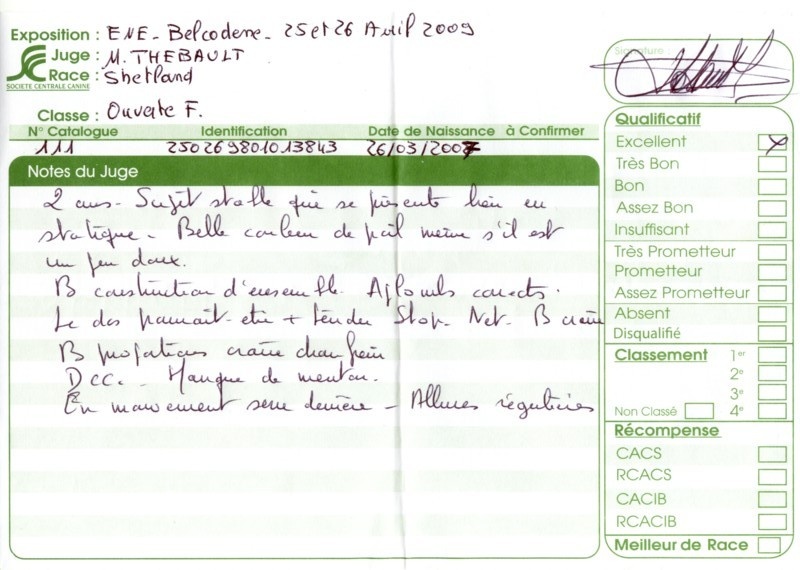 Exposition : ENE - Belcodene - 25 et 26 Avril 2009
Juge : M. THEBAULT
Race : Shetland
SOCIETE CENTRALE CANINE
Classe : Ouverte F.
N° Catalogue Identification Date de Naissance à Confirmer
111 250269801013843 26/03/2007
Notes du Juge
2 ans - Sujet stable que se présente bien en
statique - Belle couleur de poil même s'il est
un peu doux.
B construction d'ensemble. Aplombs corrects.
Le dos pourrait être + tendu Stop Net - B crâne
B proportions crâne chanfrein
Dcc. Manque de menton.
En mouvement serre derrière - Allures régulières
Signature :
Qualificatif
Excellent X
Très Bon
Bon
Assez Bon
Insuffisant
Très Prometteur
Prometteur
Assez Prometteur
Absent
Disqualifié
Classement 1er
2e
3e
Non Classé 4e
Récompense
CACS
RCACS
CACIB
RCACIB
Meilleur de Race